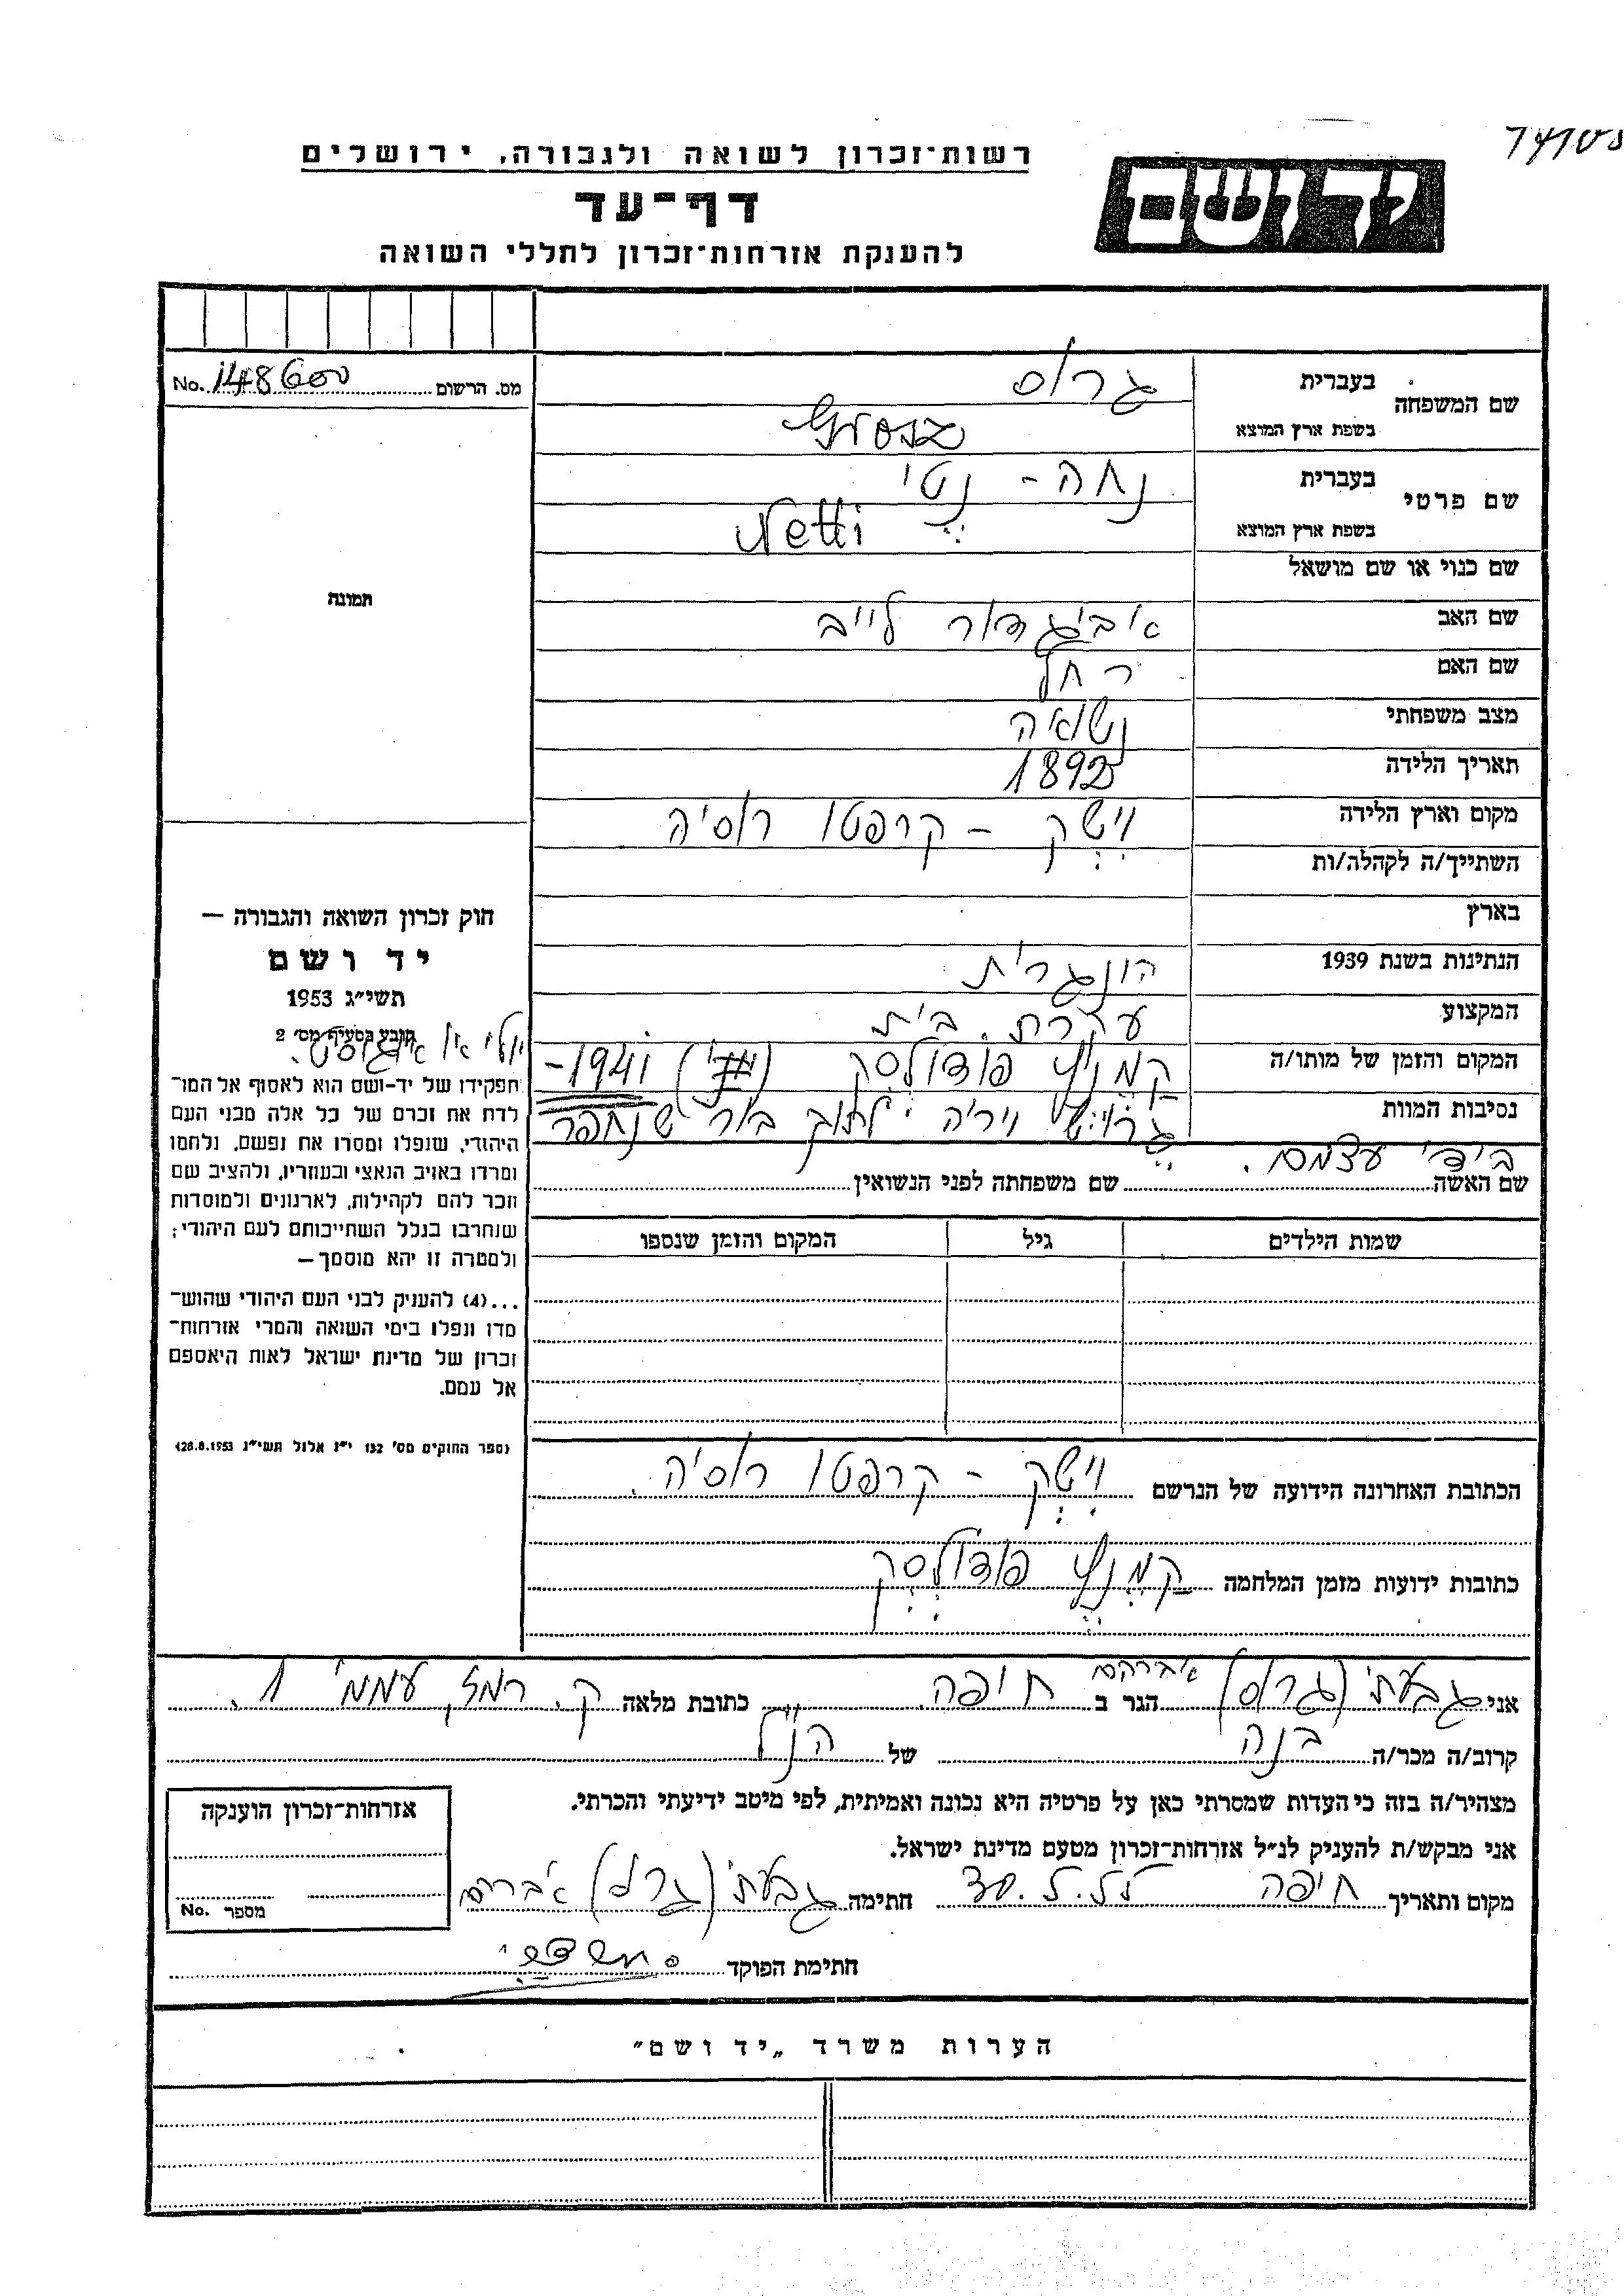 רשות-זכרון לשואה ולגבורה, ירושלים
דף-עד
להענקת אזרחות-זכרון לחללי השואה
יד ושם
No. 148600 מס. הרשום
שם המשפחה
בעברית גרוס
בשפת ארץ המוצא Grosz
שם פרטי
בעברית נחה - נֶטי
בשפת ארץ המוצא Netti
שם כנוי או שם מושאל
שם האב אביגדור לייב
שם האם רחל
מצב משפחתי נשואה
תאריך הלידה 1892
מקום וארץ הלידה וִישֶק - קרפטו רוסיה
השתייך/ה לקהלה/ות
בארץ
הנתינות בשנת 1939 הונגרית
המקצוע עקרת בית
המקום והזמן של מותו/ה קמניץ פודולסק 1941-
יולי או אוגוסט.
נסיבות המוות יריה לתוך בור שנחפר
בידי עצמם.
שם האשה שם משפחתה לפני הנשואין
שמות הילדים גיל המקום והזמן שנספו
תמונה
חוק זכרון השואה והגבורה —
יד ושם
תשי"ג 1953
קובע בסעיף מס' 2
תפקידו של יד-ושם הוא לאסוף אל המו-
לדת את זכרם של כל אלה מבני העם
היהודי, שנפלו ומסרו את נפשם, נלחמו
ומרדו באויב הנאצי ובעוזריו, ולהציב שם
וזכר להם לקהילות, לארגונים ולמוסדות
שנחרבו בגלל השתייכותם לעם היהודי;
ולמטרה זו יהא מוסמך —
...(4) להעניק לבני העם היהודי שהוש-
מדו ונפלו בימי השואה והמרי אזרחות-
זכרון של מדינת ישראל לאות היאספם
אל עמם.
(ספר החוקים מס' 132 י"ז אלול תשי"ג 28.8.1953)
הכתובת האחרונה הידועה של הנרשם וִישֶק - קרפטו רוסיה.
כתובות ידועות מזמן המלחמה קמניץ פודולסק
אני גבעתי (גרוס) אברהם הגר ב חיפה. כתובת מלאה ק. רמז, עממי 1.
קרוב/ה מכר/ה בנה של הנ"ל
מצהיר/ה בזה כי העדות שמסרתי כאן על פרטיה היא נכונה ואמיתית, לפי מיטב ידיעתי והכרתי.
אני מבקש/ת להעניק לנ"ל אזרחות-זכרון מטעם מדינת ישראל.
מקום ותאריך חיפה חתימה גבעתי (גרוס) אברהם
חתימת הפוקד
אזרחות-זכרון הוענקה
No. מספר
הערות משרד „יד ושם"